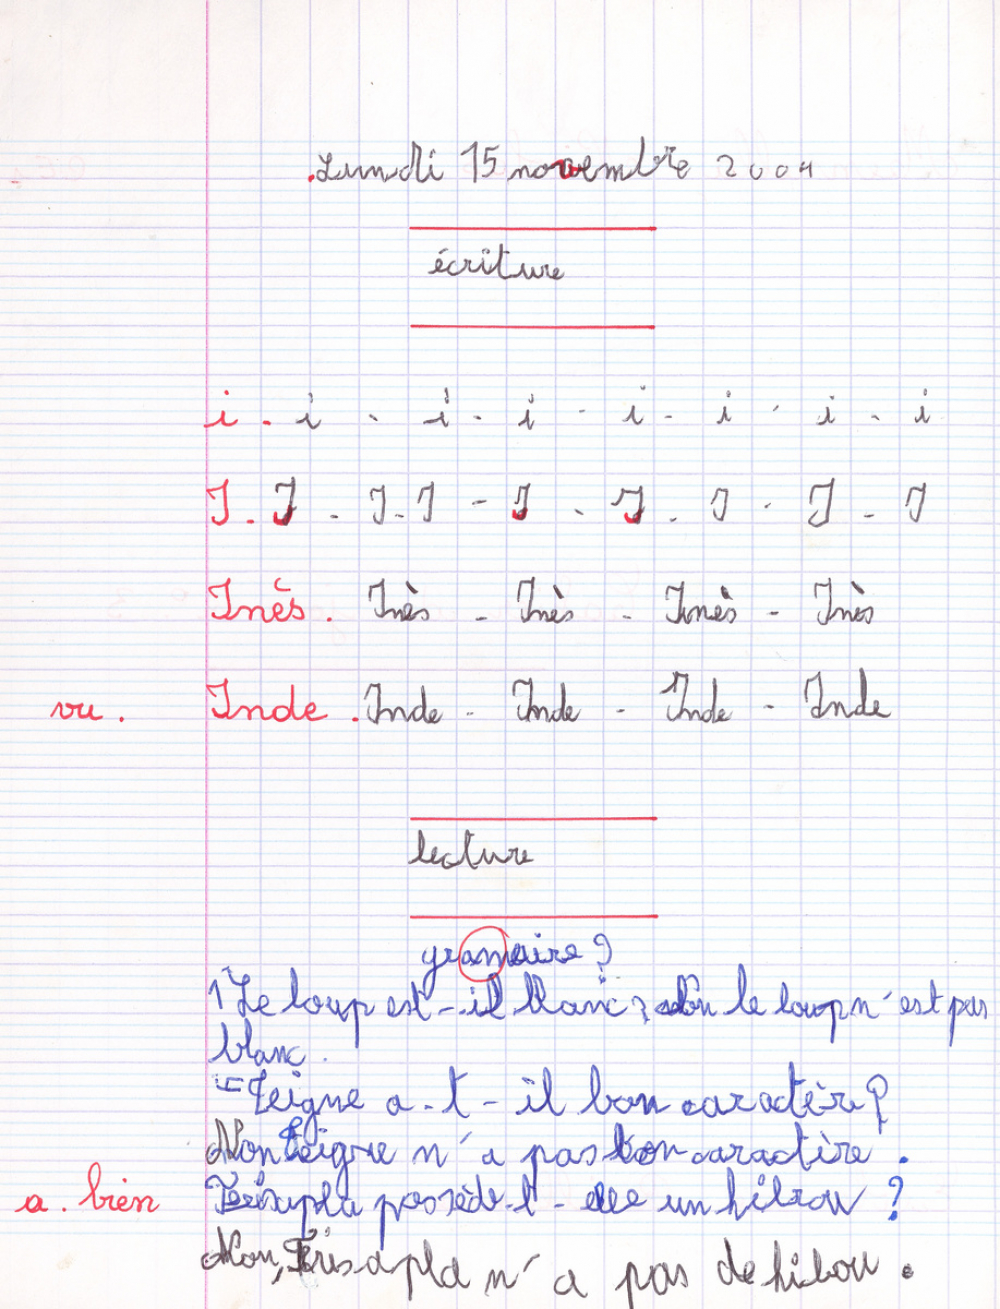 Lundi 15 novembre 2004
écriture
i . i - i - i - i - i - i - i
I . I - I - I - I - I - I - I - I
Inès . Inès - Inès - Inès - Inès
vu . Inde . Inde - Inde - Inde - Inde
lecture
gramaire ?
1 Le loup est-il blanc ? Non le loup n'est pas
blanc.
Teigne a-t-il bon caractère ?
Non Teigne n'a pas bon caractère .
a. bien possède-t-elle un hibou ?
Non, n'a pas de hibou .